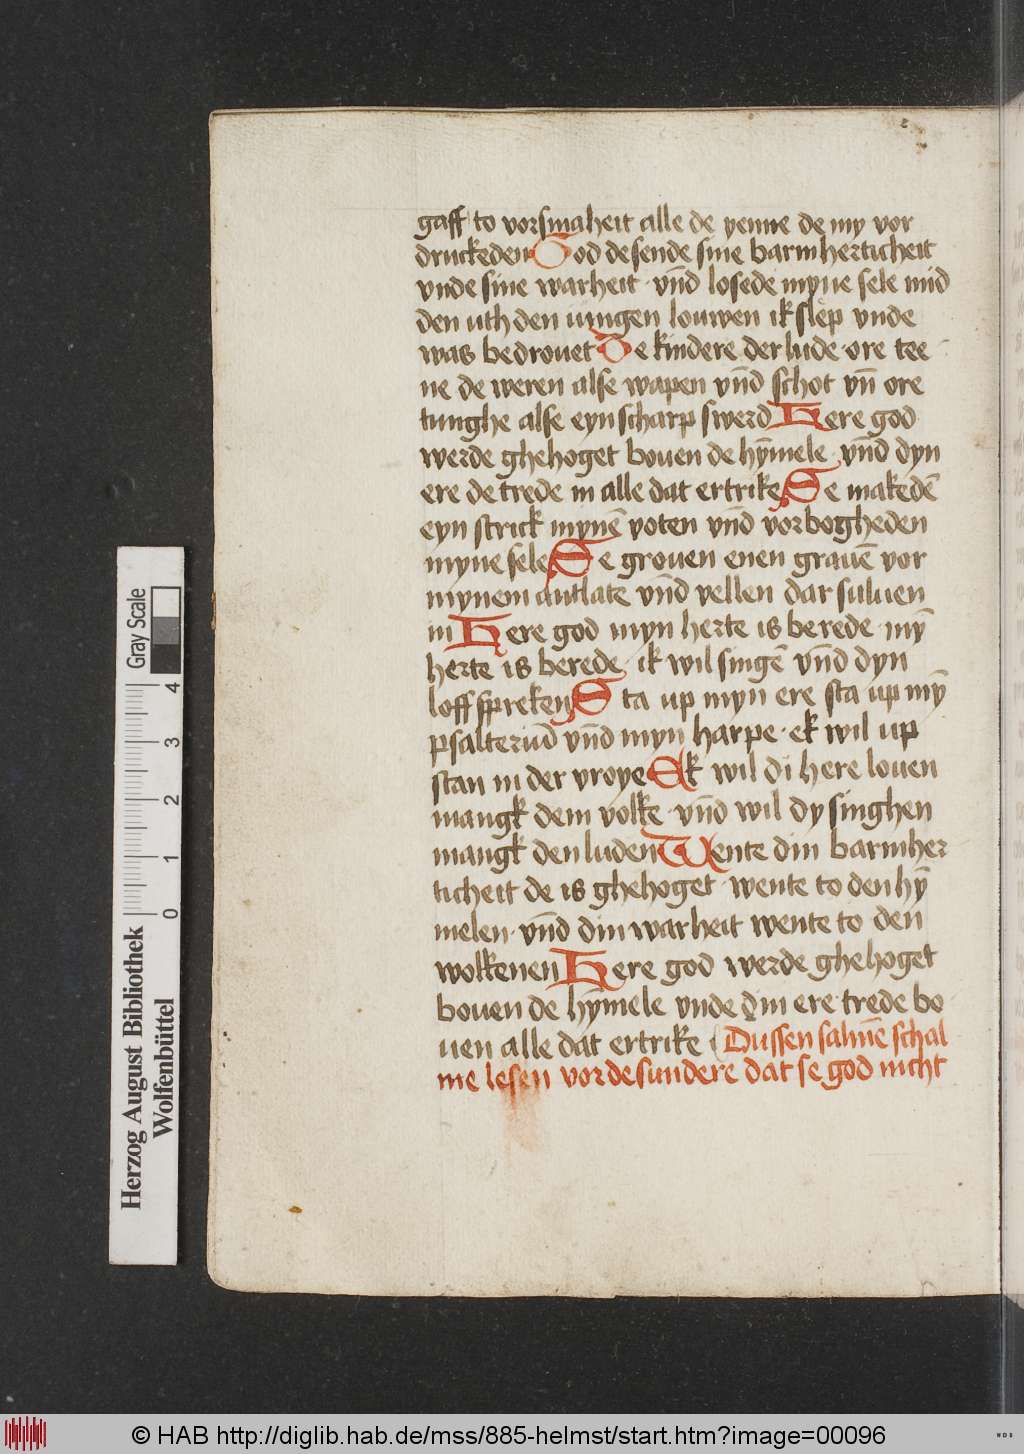 gaff to vorsmaheit alle de yenne de my vor
druckeden God de sende sine barmherticheit
vnde sine warheit · vnd̄ losede myne sele mid
den uth den iungen louwen ik slep vnde
was bedrouet De kindere der lude · ore tee
ne de weren alse wapen vnd̄ schot vn̄ ore
tunghe alse eyn scharp swerd Here god
werde ghehoget bouen de hȳmele · vnd̄ dyn
ere de trede in alle dat ertrike Se makedē
eyn strick mynē voten vnd̄ vorbogheden
myne sele Se grouen enen grauē vor
mynem antlate vnd̄ vellen dar suluen
in Here god myn herte is berede · mȳ
herte is berede · ik wil singē vnd̄ dyn
loff spreken Sta up myn ere sta up mȳ
psalteriū vnd̄ myn harpe · ek wil up
stan in der vroye Ek wil di here louen
mangk dem volke · vnd̄ wil dy singhen
mangk den luden Wente din barmher
ticheit de is ghehoget · wente to den hȳ
melen · vnd̄ din warheit wente to den
wolkenen Here god werde ghehoget
bouen de hȳmele vnde din ere trede bo
uen alle dat ertrike Dussen salmē schal
me lesen vordesundere dat se god nicht
Herzog August Bibliothek
Wolfenbüttel
Gray Scale
0 1 2 3 4
© HAB http://diglib.hab.de/mss/885-helmst/start.htm?image=00096